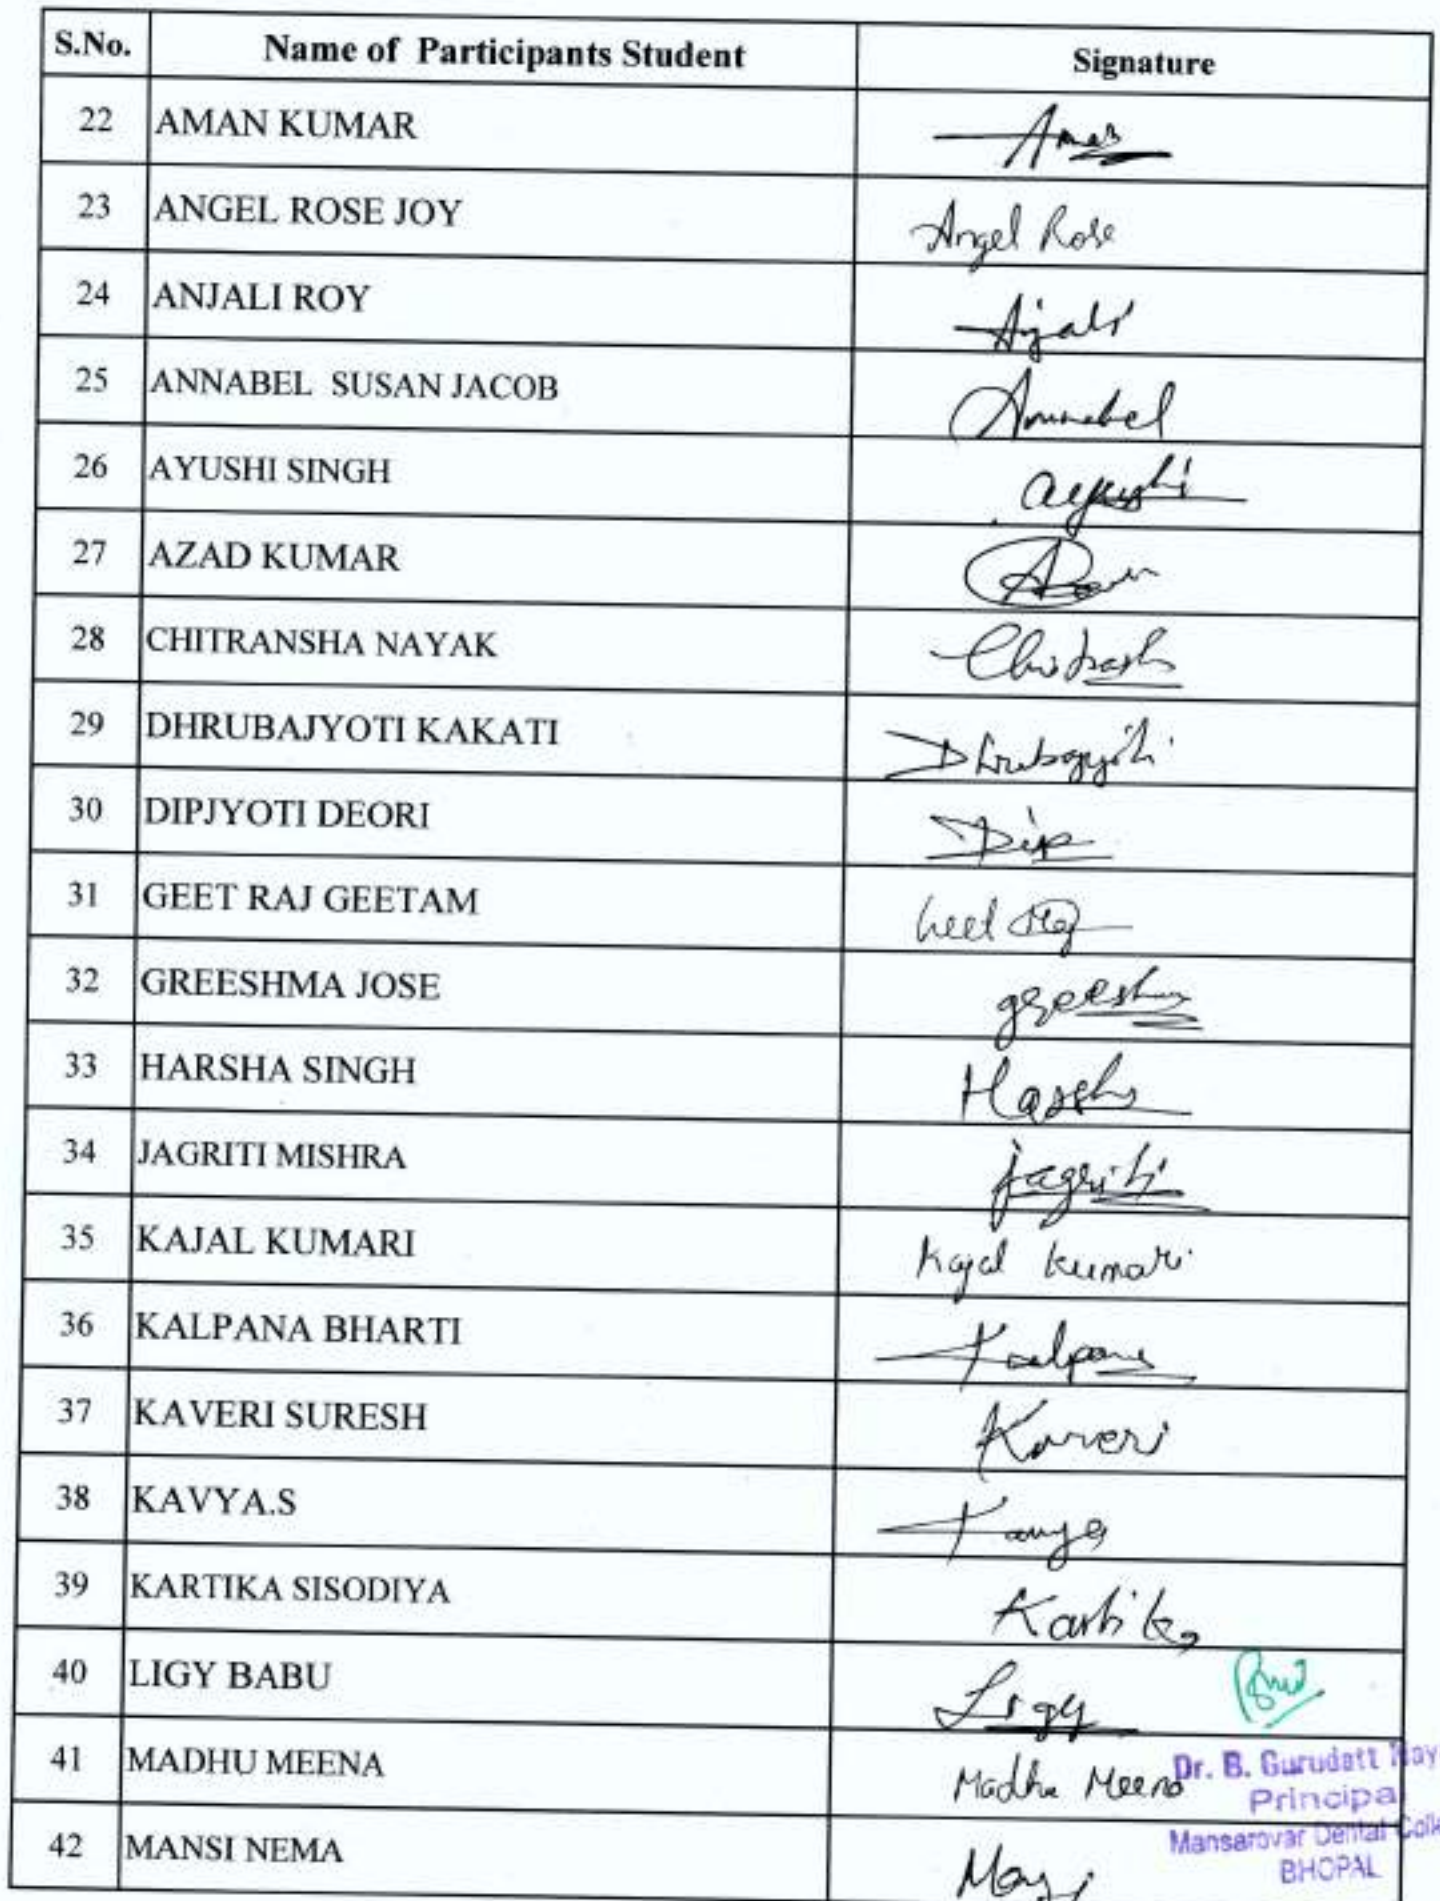 S.No. Name of Participants Student Signature
22 AMAN KUMAR Aman
23 ANGEL ROSE JOY Angel Rose
24 ANJALI ROY Anjali
25 ANNABEL SUSAN JACOB Annabel
26 AYUSHI SINGH ayushi
27 AZAD KUMAR
28 CHITRANSHA NAYAK
29 DHRUBAJYOTI KAKATI Dhrubajyoti
30 DIPJYOTI DEORI Dip
31 GEET RAJ GEETAM Geet Raj
32 GREESHMA JOSE greeshma
33 HARSHA SINGH Harsha
34 JAGRITI MISHRA jagriti
35 KAJAL KUMARI Kajal kumari
36 KALPANA BHARTI Kalpana
37 KAVERI SURESH Kaveri
38 KAVYA.S Kavya
39 KARTIKA SISODIYA Kartika
40 LIGY BABU Ligy
41 MADHU MEENA Madhu Meena
Dr. B. Gurudatt Nay
Principal
Mansarovar Dental Colle
BHOPAL
42 MANSI NEMA